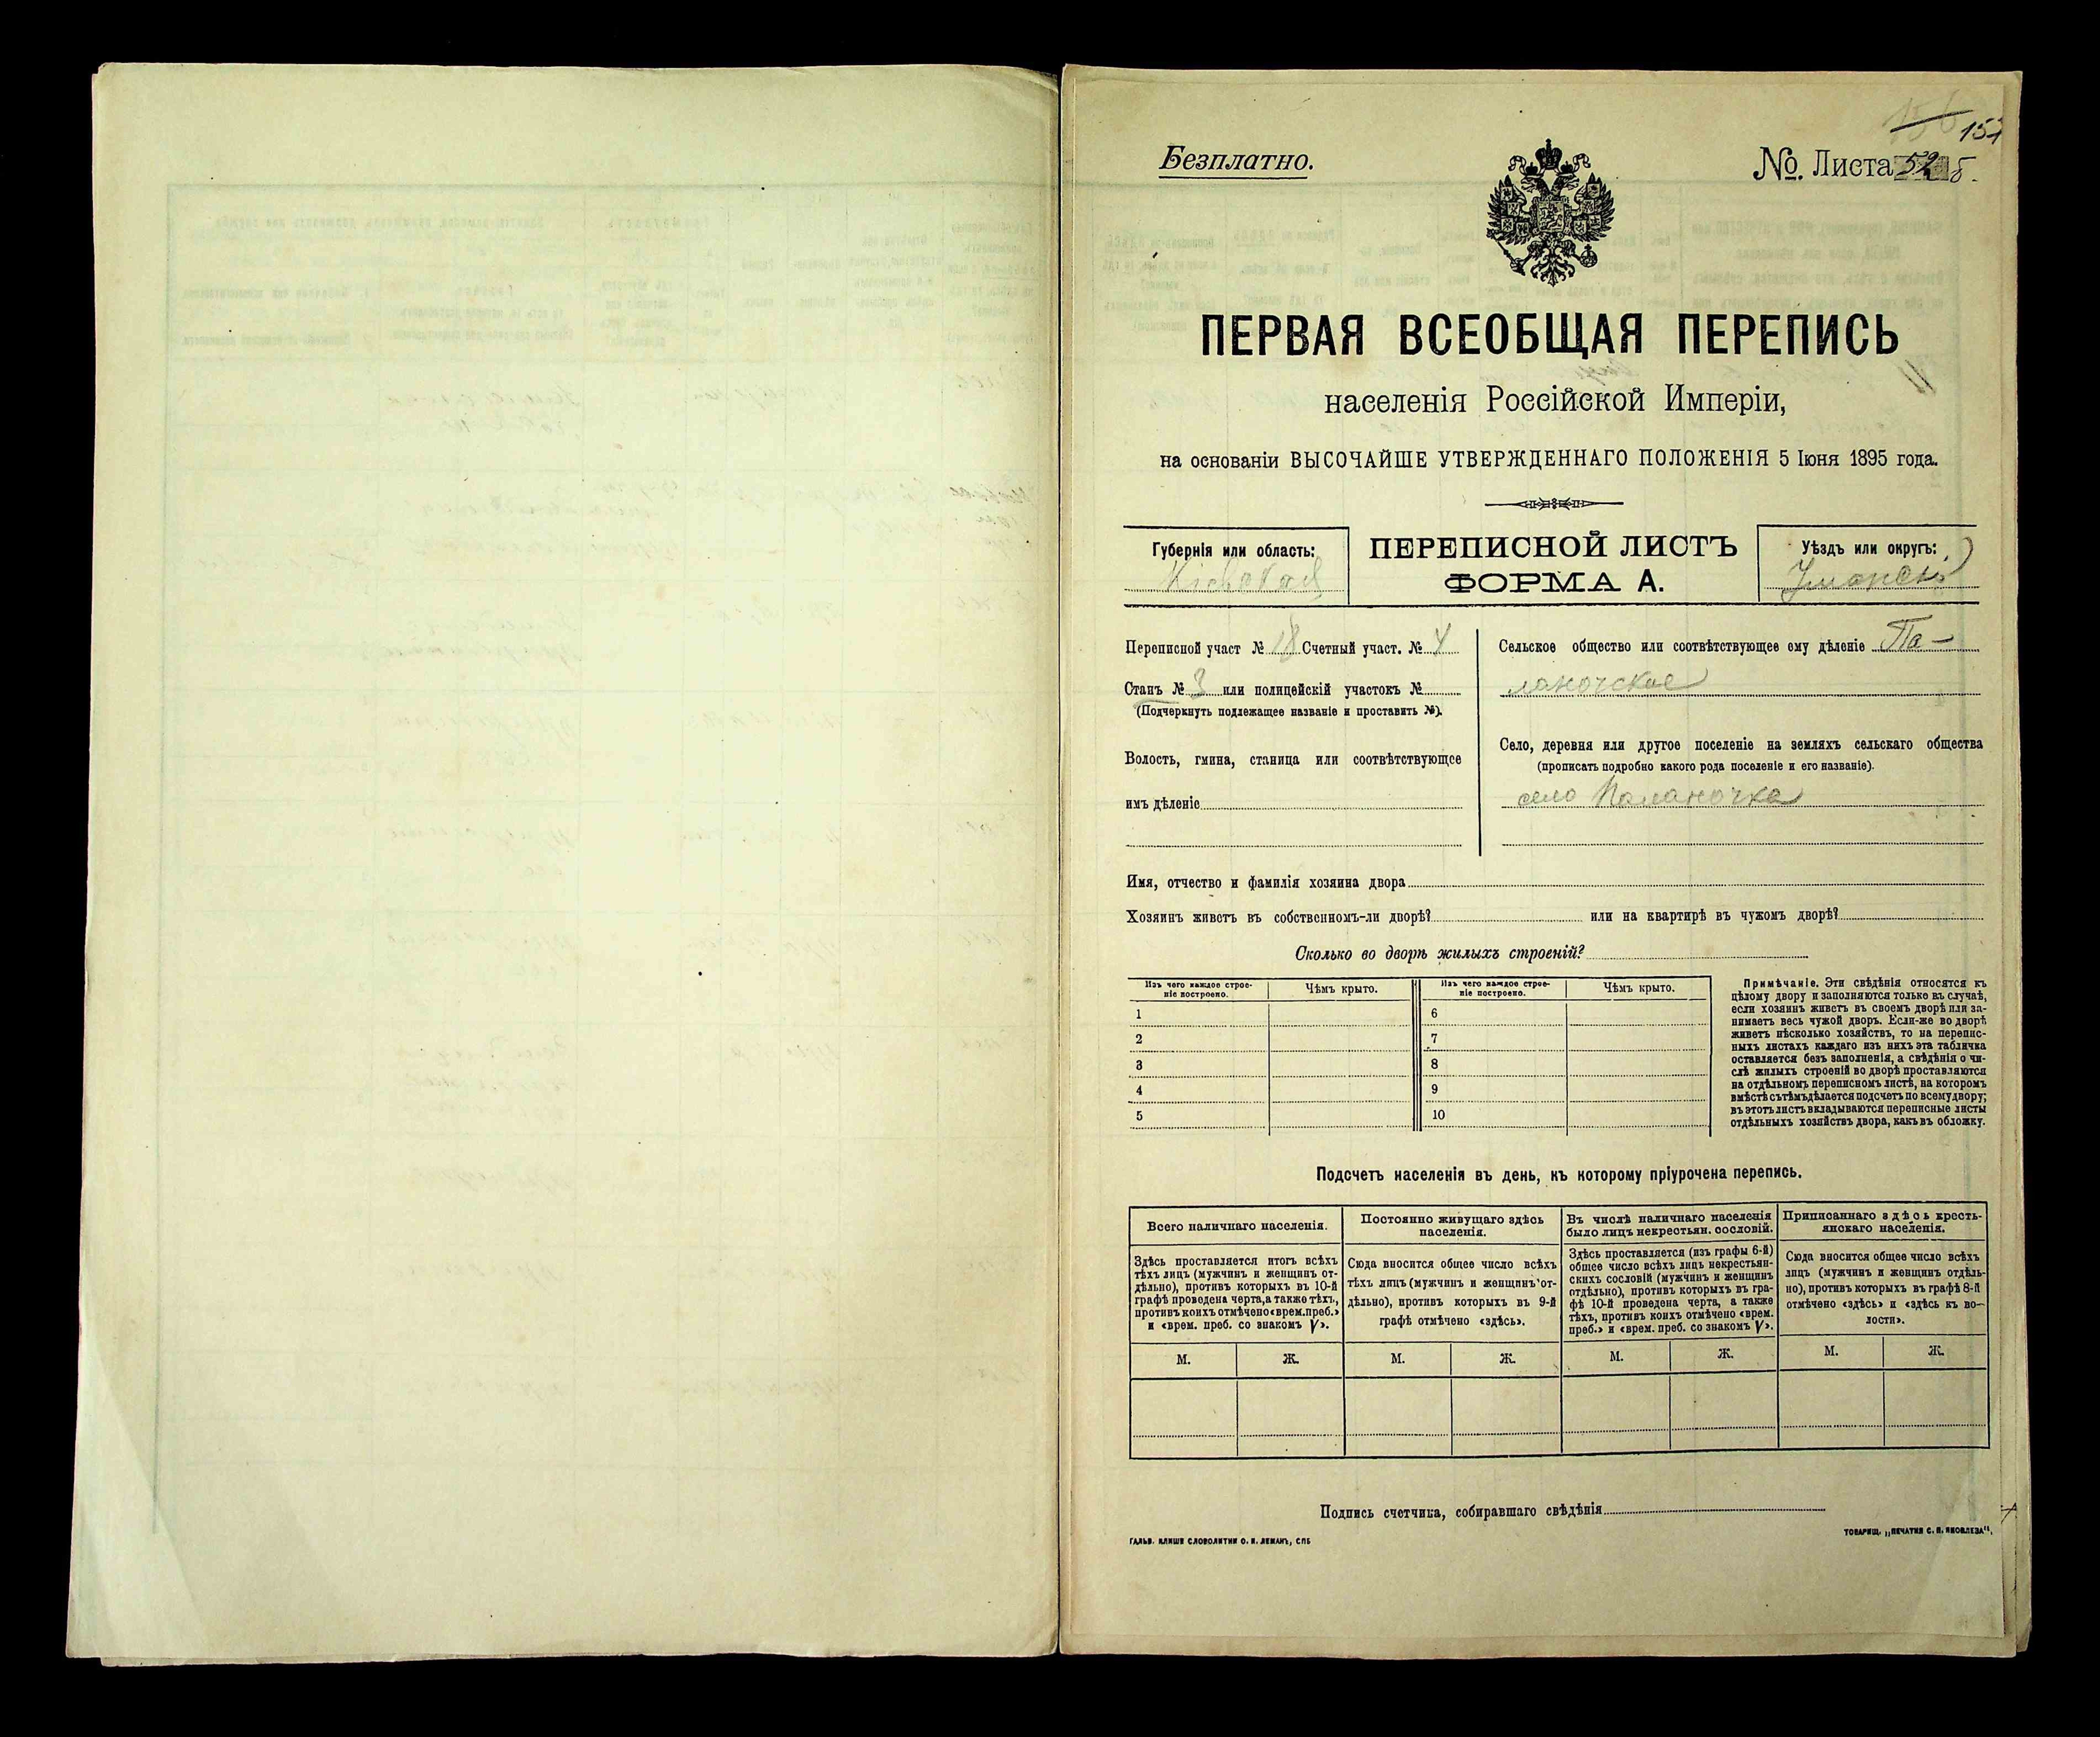 Безплатно.
№ Листа 52 б.
ПЕРВАЯ ВСЕОБЩАЯ ПЕРЕПИСЬ
населенія Россійской Имперіи,
на основаніи ВЫСОЧАЙШЕ УТВЕРЖДЕННАГО ПОЛОЖЕНІЯ 5 Іюня 1895 года.
Губернія или область:
Кіевская
ПЕРЕПИСНОЙ ЛИСТЪ
ФОРМА А.
Уѣздъ или округъ:
Уманскій
Переписной участ № 18 Счетный участ. № 4
Станъ № 3 или полицейскій участокъ №
(Подчеркнуть подлежащее названіе и проставить №).
Волость, гмина, станица или соотвѣтствующее
имъ дѣленіе
Сельское общество или соотвѣтствующее ему дѣленіе Па-
ланочское
Село, деревня или другое поселеніе на земляхъ сельскаго общества
(прописать подробно какого рода поселеніе и его названіе).
село Паланочка
Имя, отчество и фамилія хозяина двора
Хозяинъ живетъ въ собственномъ-ли дворѣ? или на квартирѣ въ чужомъ дворѣ?
Сколько во дворѣ жилыхъ строеній?
Изъ чего каждое строе-
ніе построено.
Чѣмъ крыто.
Изъ чего каждое строе-
ніе построено.
Чѣмъ крыто.
1 6
2 7
3 8
4 9
5 10
Примѣчаніе. Эти свѣдѣнія относятся къ
цѣлому двору и заполняются только въ случаѣ,
если хозяинъ живетъ въ своемъ дворѣ или за-
нимаетъ весь чужой дворъ. Если-же во дворѣ
живетъ нѣсколько хозяйствъ, то на перепис-
ныхъ листахъ каждаго изъ нихъ эта табличка
оставляется безъ заполненія, а свѣдѣнія о чи-
слѣ жилыхъ строеній во дворѣ проставляются
на отдѣльномъ переписномъ листѣ, на которомъ
вмѣстѣ съ тѣмъ дѣлается подсчетъ по всему двору;
въ этотъ листъ вкладываются переписные листы
отдѣльныхъ хозяйствъ двора, какъ въ обложку.
Подсчетъ населенія въ день, къ которому пріурочена перепись.
Всего наличнаго населенія.
Здѣсь проставляется итогъ всѣхъ
тѣхъ лицъ (мужчинъ и женщинъ от-
дѣльно), противъ которыхъ въ 10-й
графѣ проведена черта, а также тѣхъ,
противъ коихъ отмѣчено «врем. преб.»
и «врем. преб. со знакомъ V».
Постоянно живущаго здѣсь
населенія.
Сюда вносится общее число всѣхъ
тѣхъ лицъ (мужчинъ и женщинъ от-
дѣльно), противъ которыхъ въ 9-й
графѣ отмѣчено «здѣсь».
Въ числѣ наличнаго населенія
было лицъ некрестьян. сословій.
Здѣсь проставляется (изъ графы 6-й)
общее число всѣхъ лицъ некрестьян-
скихъ сословій (мужчинъ и женщинъ
отдѣльно), противъ которыхъ въ гра-
фѣ 10-й проведена черта, а также
тѣхъ, противъ коихъ отмѣчено «врем.
преб.» и «врем. преб. со знакомъ V».
Приписаннаго здѣсь кресть-
янскаго населенія.
Сюда вносится общее число всѣхъ
лицъ (мужчинъ и женщинъ отдѣль-
но), противъ которыхъ въ графѣ 8-й
отмѣчено «здѣсь» и «здѣсь къ во-
лости».
М. Ж. М. Ж. М. Ж. М. Ж.
Подпись счетчика, собиравшаго свѣдѣнія
ГАЛЬВ. КЛИШЕ СЛОВОЛИТНИ О. И. ЛЕМАНЪ, СПБ
ТОВАРИЩ. „ПЕЧАТНЯ С. П. ЯКОВЛЕВА“.